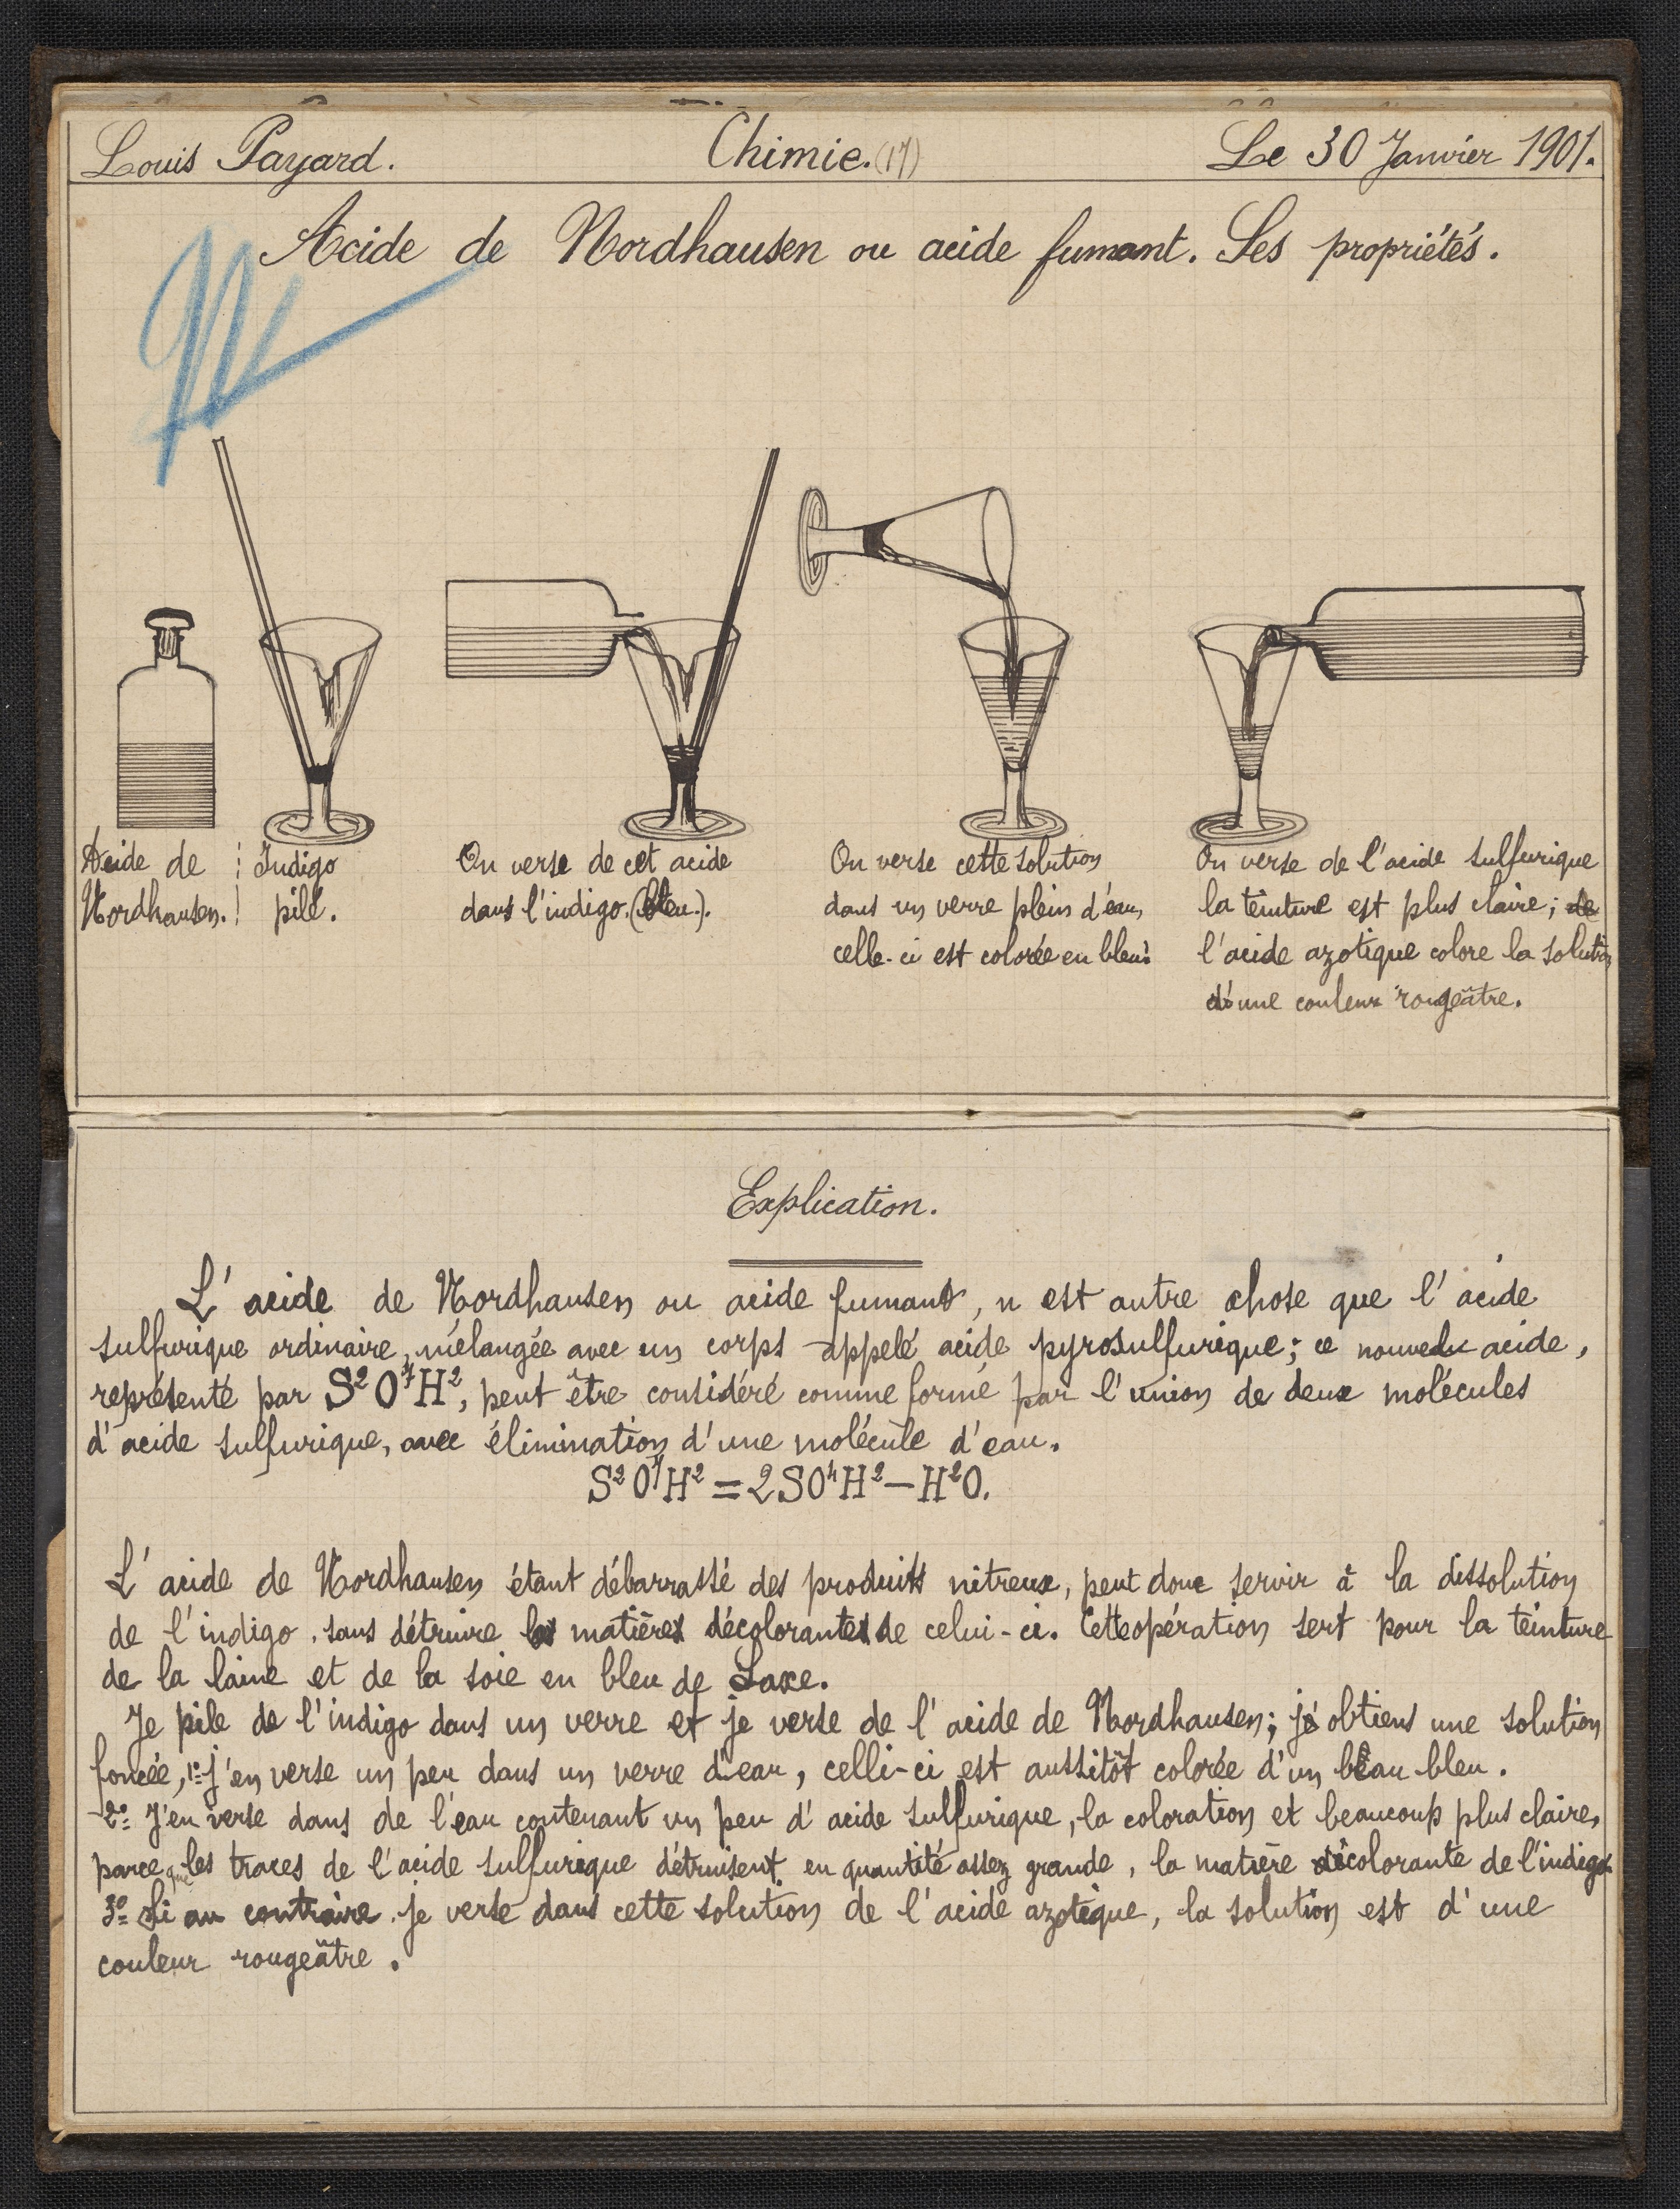 Louis Payard. Chimie. (17) Le 30 Janvier 1901.
Acide de Nordhausen ou acide fumant. Ses propriétés.
Acide de Nordhausen.
Indigo pilé.
On verse de cet acide
dans l'indigo. (bleu.).
On verse cette solution
dans un verre plein d'eau,
celle-ci est colorée en bleu.
On verse de l'acide sulfurique
la teinture est plus claire; de
l'acide azotique colore la solution
d'une couleur rougeâtre.
Explication.
L'acide de Nordhausen ou acide fumant, n'est autre chose que l'acide
sulfurique ordinaire, mélangée avec un corps appelé acide pyrosulfurique; ce nouvel acide,
représenté par S²O⁷H², peut être considéré comme formé par l'union de deux molécules
d'acide sulfurique, avec élimination d'une molécule d'eau.
S²O⁷H² = 2SO⁴H² — H²O.
L'acide de Nordhausen étant débarrassé des produits nitreux, peut donc servir à la dissolution
de l'indigo, sans détruire les matières décolorantes de celui-ci. Cette opération sert pour la teinture
de la laine et de la soie en bleu de Saxe.
Je pile de l'indigo dans un verre et je verse de l'acide de Nordhausen; j'obtiens une solution
foncée, 1º j'en verse un peu dans un verre d'eau, celli-ci est aussitôt colorée d'un beau bleu.
2º J'en verse dans de l'eau contenant un peu d'acide sulfurique, la coloration et beaucoup plus claire,
parce que les traces de l'acide sulfurique détruisent en quantité assez grande, la matière décolorante de l'indigo.
3º Si au contraire je verse dans cette solution de l'acide azotique, la solution est d'une
couleur rougeâtre.